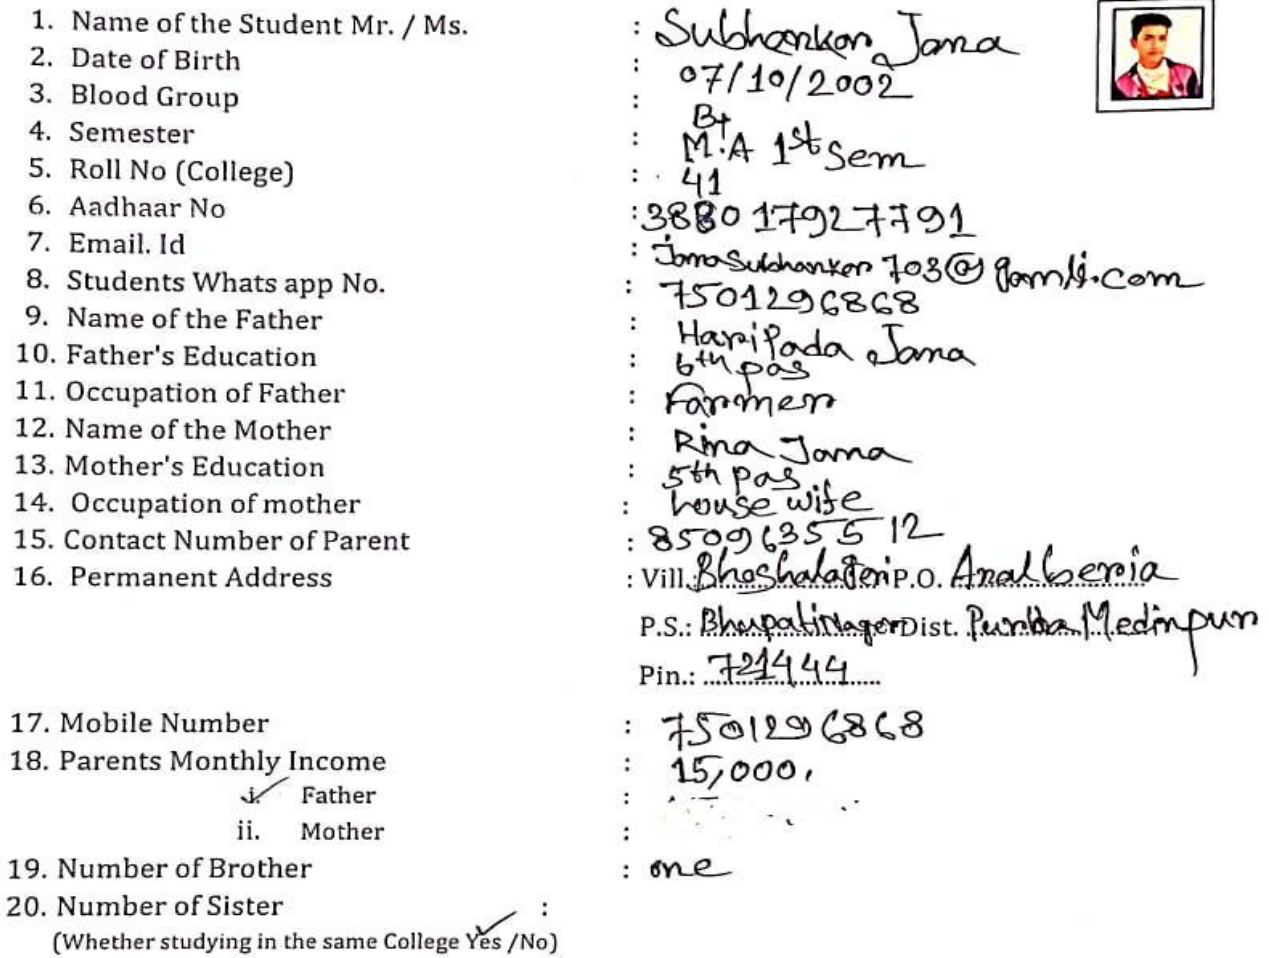 1. Name of the Student Mr. / Ms. : Subhankar Jana
2. Date of Birth : 07/10/2002
3. Blood Group : B+
4. Semester : M.A 1st Sem
5. Roll No (College) : 41
6. Aadhaar No : 3880 17927791
7. Email. Id : JanaSubhankar 703@gamli.com
8. Students Whats app No. : 7501296868
9. Name of the Father : Haripada Jana
10. Father's Education : 6th pas
11. Occupation of Father : Farmer
12. Name of the Mother : Rina Jana
13. Mother's Education : 5th pas
14. Occupation of mother : house wife
15. Contact Number of Parent : 8509635512
16. Permanent Address : Vill.: P.O. Analberia
P.S.: Bhupatinagar Dist. Purba Medinpur
Pin.: 721444
17. Mobile Number : 7501296868
18. Parents Monthly Income : 15,000.
i. Father :
ii. Mother :
19. Number of Brother : one
20. Number of Sister :
(Whether studying in the same College Yes /No)